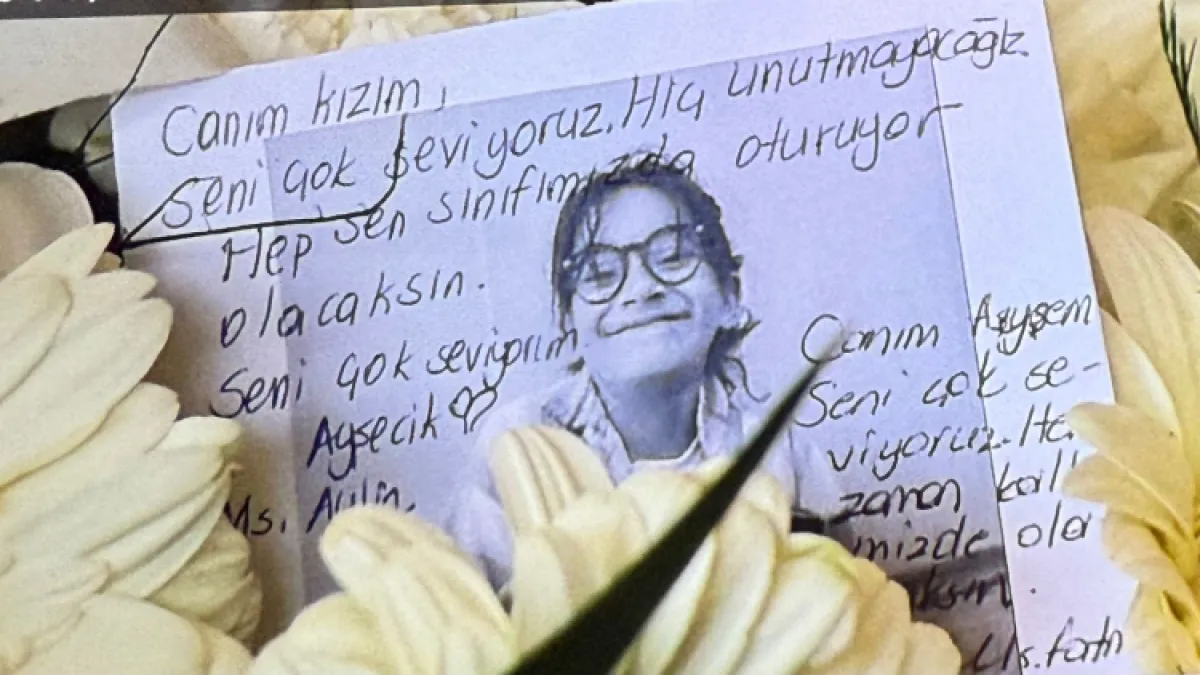 Canım kızım,
Seni çok seviyoruz. Hiç unutmayacağız.
Hep sen sınıfımızda oturuyor
olacaksın.
Seni çok seviyorum
Ayşecik
Ms.
Canım Ayşem
Seni çok se-
viyoruz. He
zaman kal
imizde ola
ksın.
Ms.